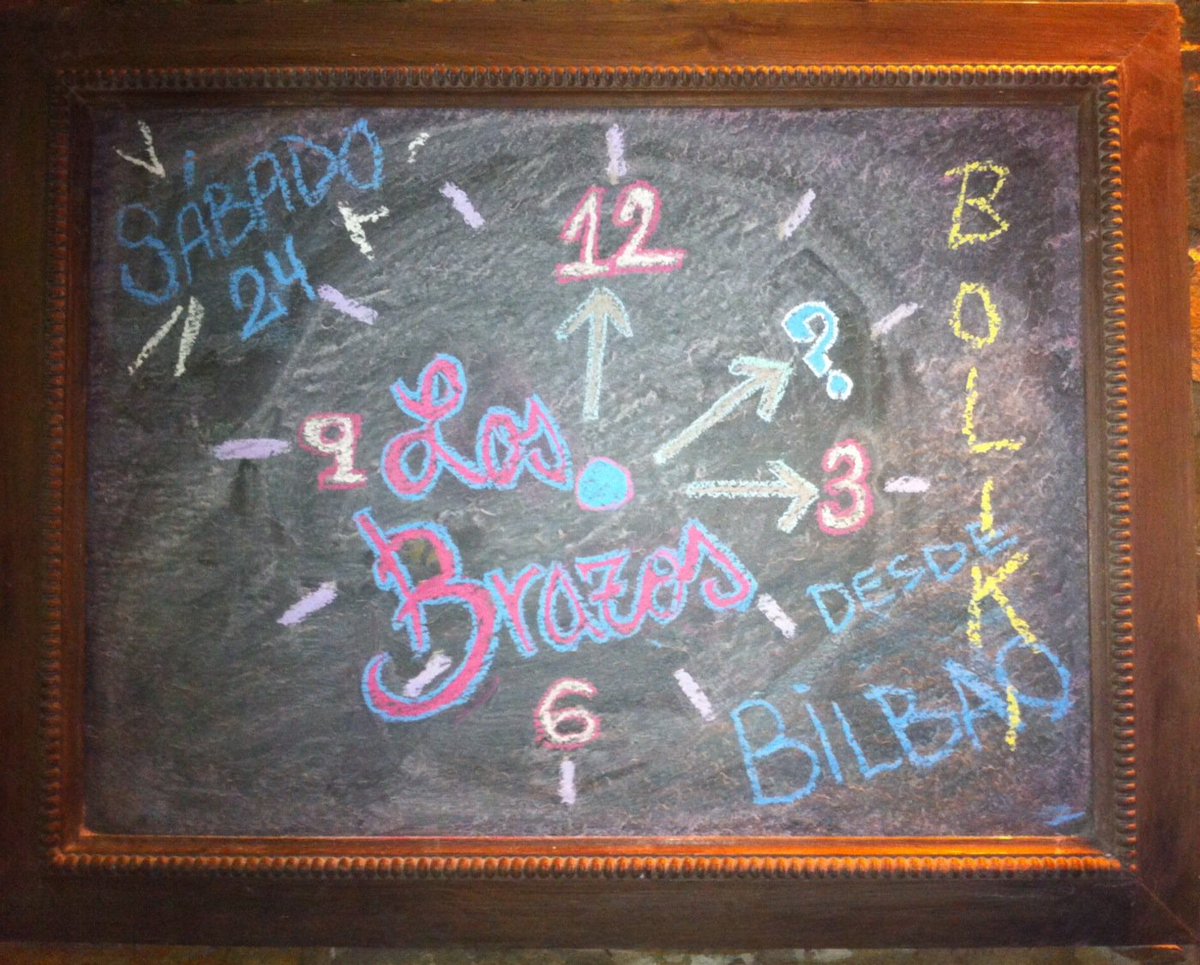 SÁBADO
24
12
?
9
3
6
Los
Brazos
DESDE
BILBAO
BOLIKI